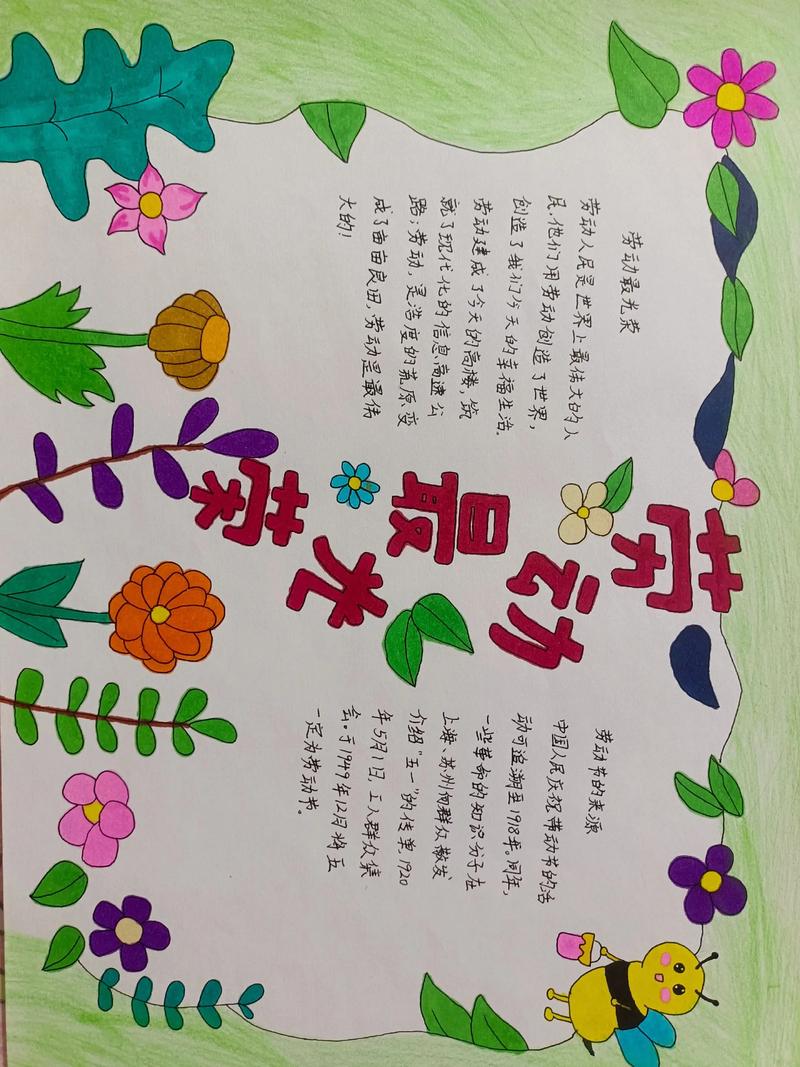 劳动最光荣
劳动最光荣
劳动人民是世界上最伟大的人
民,他们用劳动创造了世界,
创造了我们今天的幸福生活.
劳动建成了今天的高楼,筑
就了现代化的信息高速公
路;劳动,是浩度的荒原变
成了亩亩良田,劳动是最伟
大的!
劳动节的来源
中国人民庆祝劳动节的活
动可追溯至1918年。同年,
一些革命的知识分子在
上海、苏州向群众散发
介绍"五一"的传单,1920
年5月1日,工人群众集
会。于1949年12月将五
一定为劳动节。